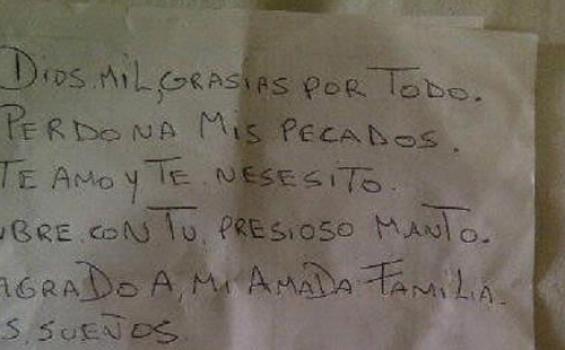 DIOS MIL, GRASIAS POR TODO.
PERDONA MIS PECADOS.
TE AMO Y TE NESESITO.
UBRE CON TU PRESIOSO MANTO.
AGRADO A, MI AMADA FAMILIA.
S. SUEÑOS